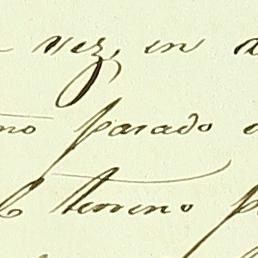 vez, en
no parado
terreno